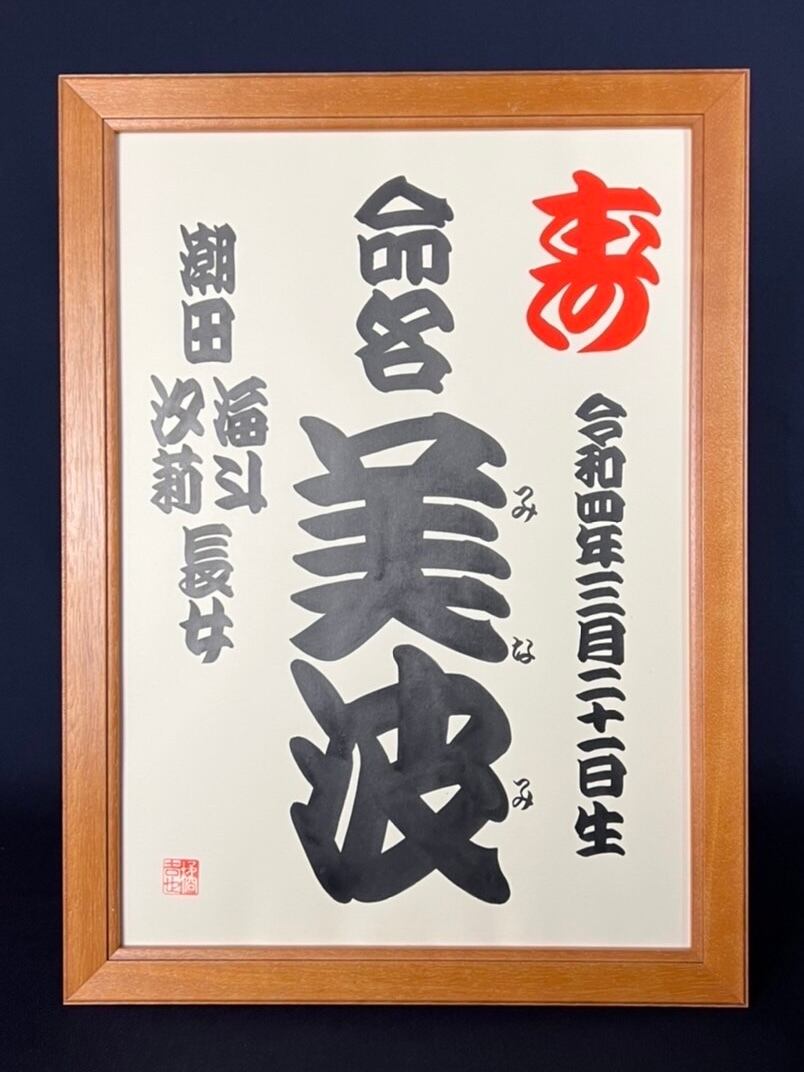 寿
令和四年三月二十一日生
命名
美波
みなみ
潮田
海斗
汐莉
長女